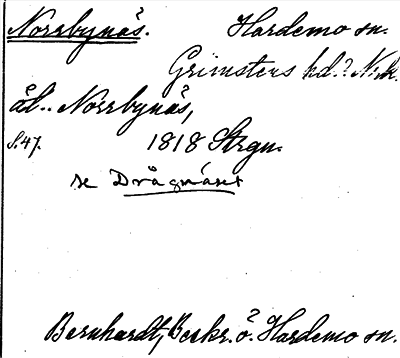 Norrbynäs. Hardemo sn.
Grimstens hd.? Nrk.
äl.. Norrbynäs,
S.47. 1818 Strgn.
se Drågnäset
Bernhardt, Beskr. ö. Hardemo sn.